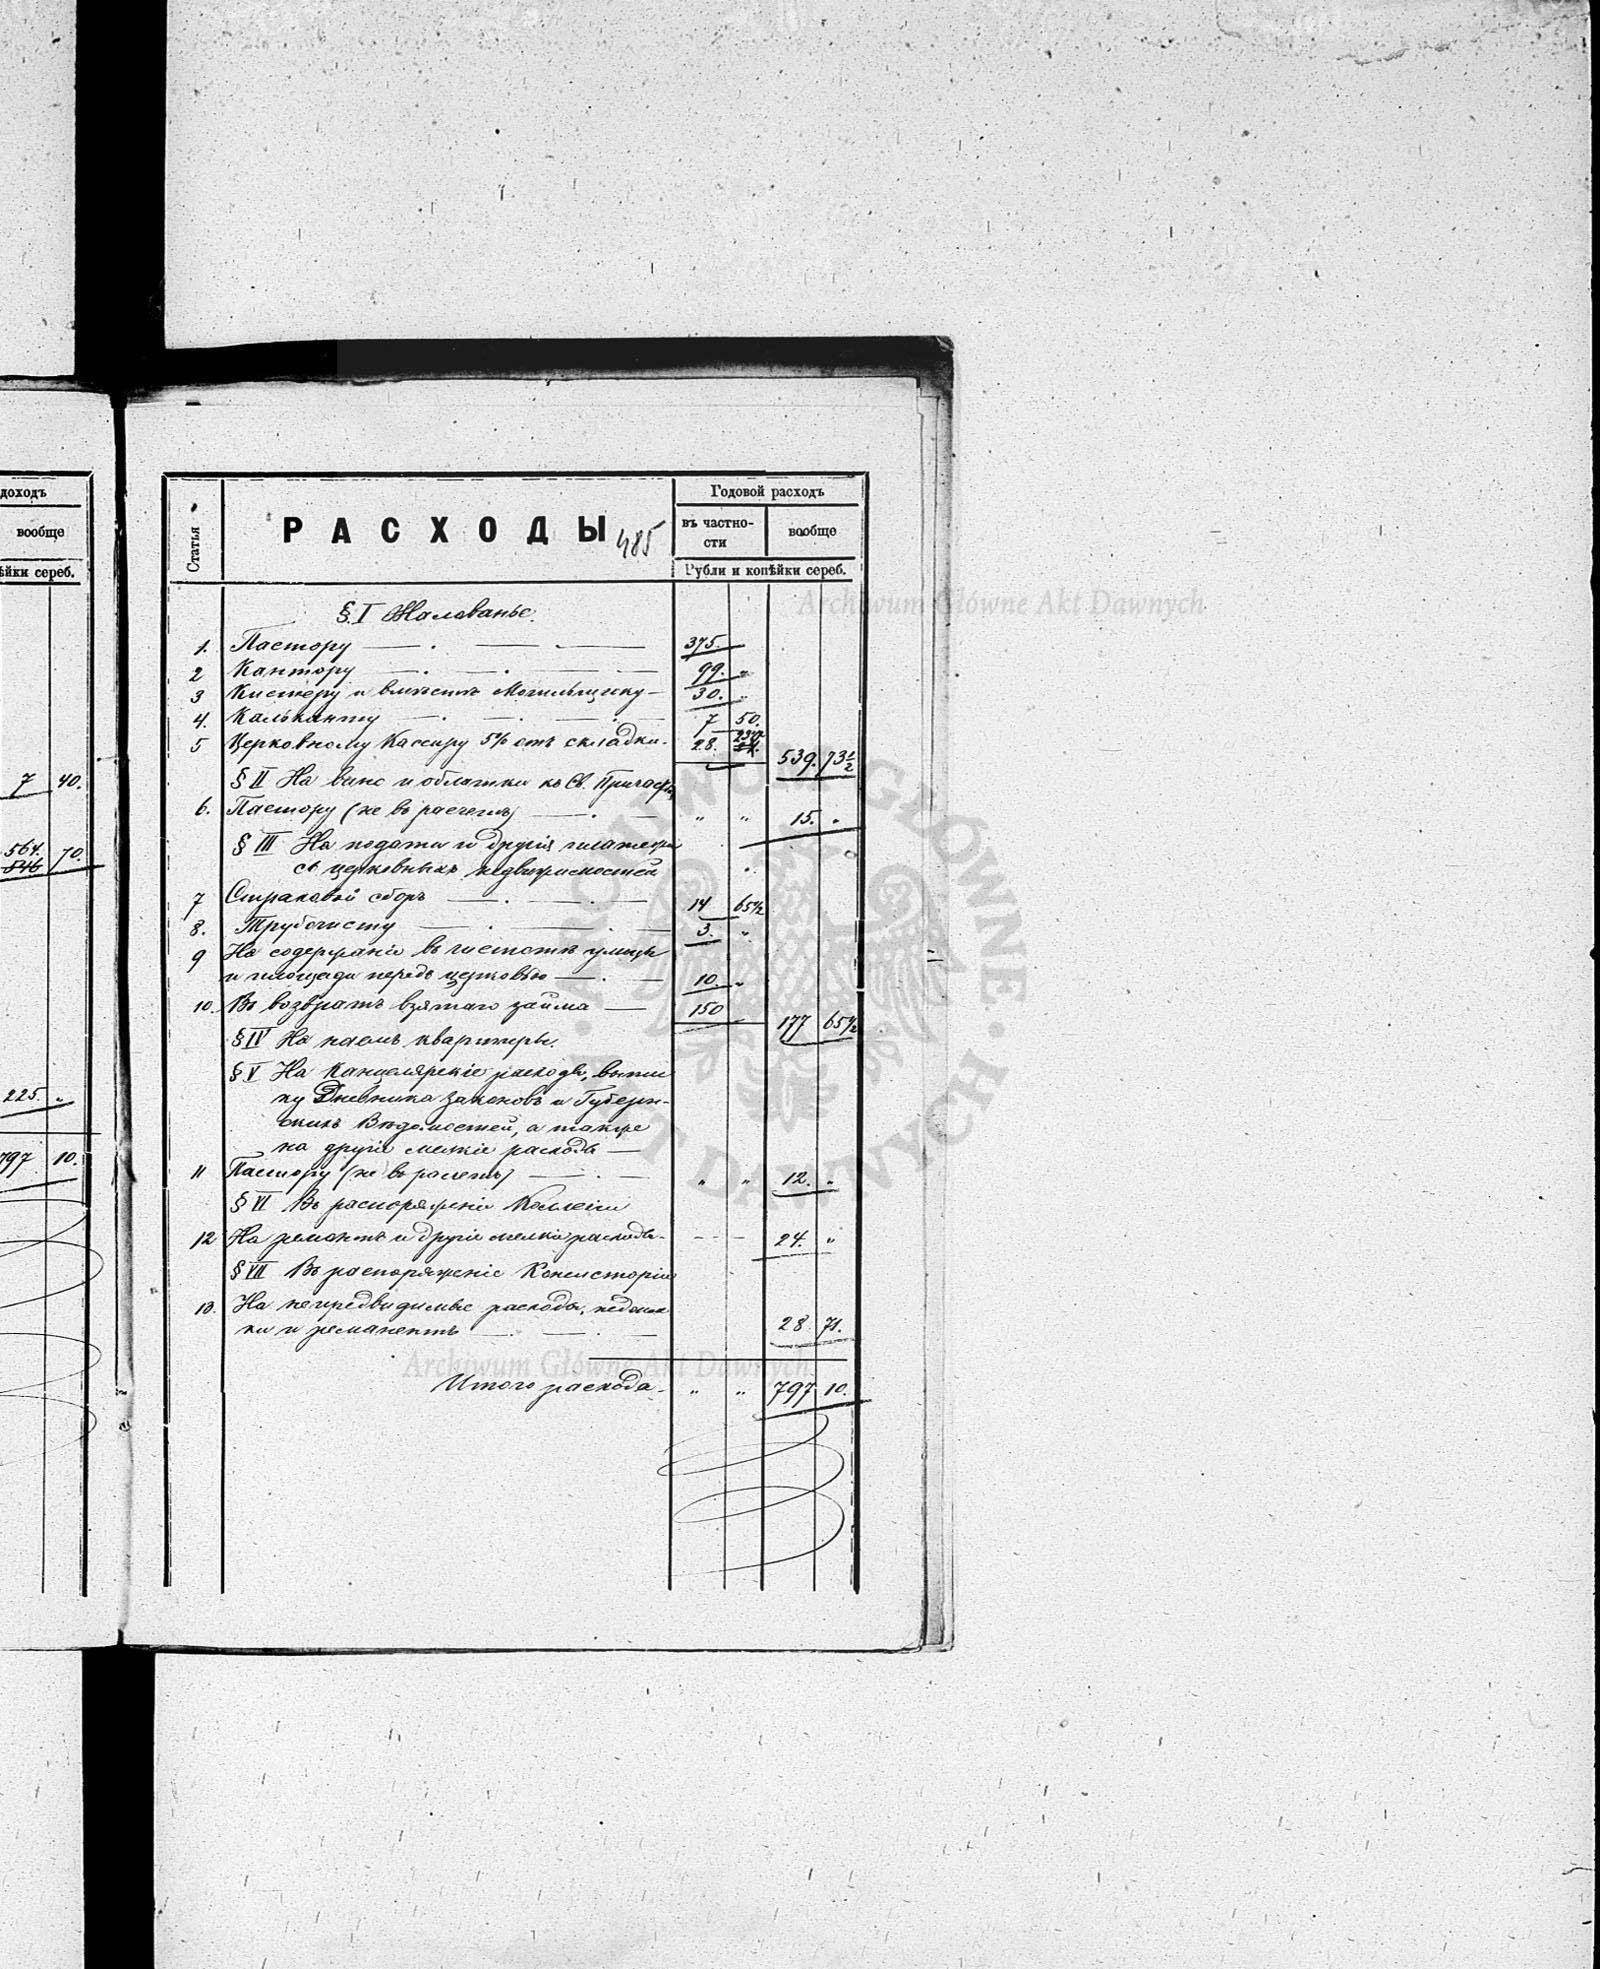 доходъ
вообще
ѣйки сереб.
7 40.
564.
546 70.
225. "
797 10.
Статья
РАСХОДЫ
485
Годовой расходъ
въ частно-
сти
вообще
Рубли и копѣйки сереб.
§ I Жалованье.
1. Пастору 375.
2 Кантору 99. "
3 Кистеру и вмѣстѣ Могильщику 30. "
4. Кальканту 7 50.
5 Церковному Кассиру 5% отъ складки. 28. 23½ 539. 73½
§ II На вино и облатки къ Св. Причастію
6. Пастору (не въ расчетъ) " " 15. "
§ III На подати и другія платежи
съ церковныхъ недвижимостей
7 Страховой сборъ 14 65½
8. Трубочисту 3. "
9 На содержаніе въ чистотѣ улицы
и площади передъ церковью 10. "
10. Въ возвратъ взятаго займа 150 177 65½
§ IV На наемъ квартиры.
§ V На Канцелярскіе расходы, выпис
ку Дневника законовъ и Губерн-
скихъ Вѣдомостей, а также
на другіе мелкіе расходы
11 Пастору (не въ расчетъ) " " 12. "
§ VI Въ распоряженіе Коллегіи
12 На ремонтъ и другіе мелкіе расходы 24. "
§ VII Въ распоряженіе Консисторіи
13. На непредвидимые расходы, недоим
ки и ремонентъ 28 71.
Итого расхода. " " 797 10.
Archiwum Główne Akt Dawnych
Archiwum Główne Akt Dawnych
ARCHIWUM GŁÓWNE AKT DAWNYCH